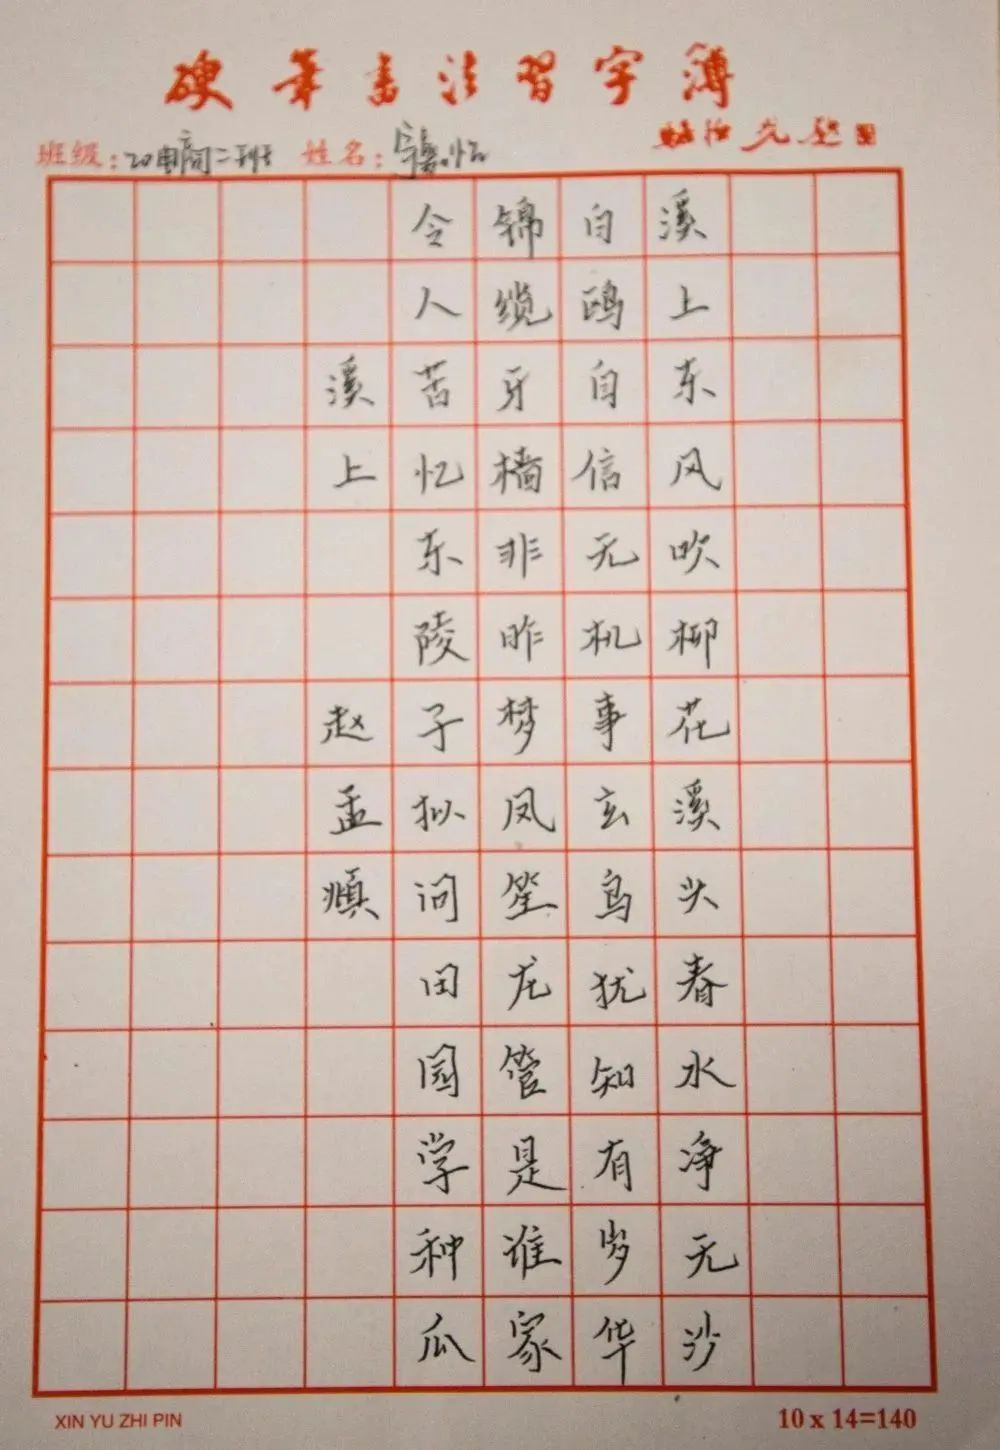 硬筆書法習字簿
班级：20电商二班 姓名：
溪上东风吹柳花溪头春水净无沙
白鸥自信无机事玄鸟犹知有岁华
锦缆牙樯非昨梦凤笙龙管是谁家
令人苦忆东陵子拟问田园学种瓜
溪上 赵孟
XIN YU ZHI PIN
10 x 14=140